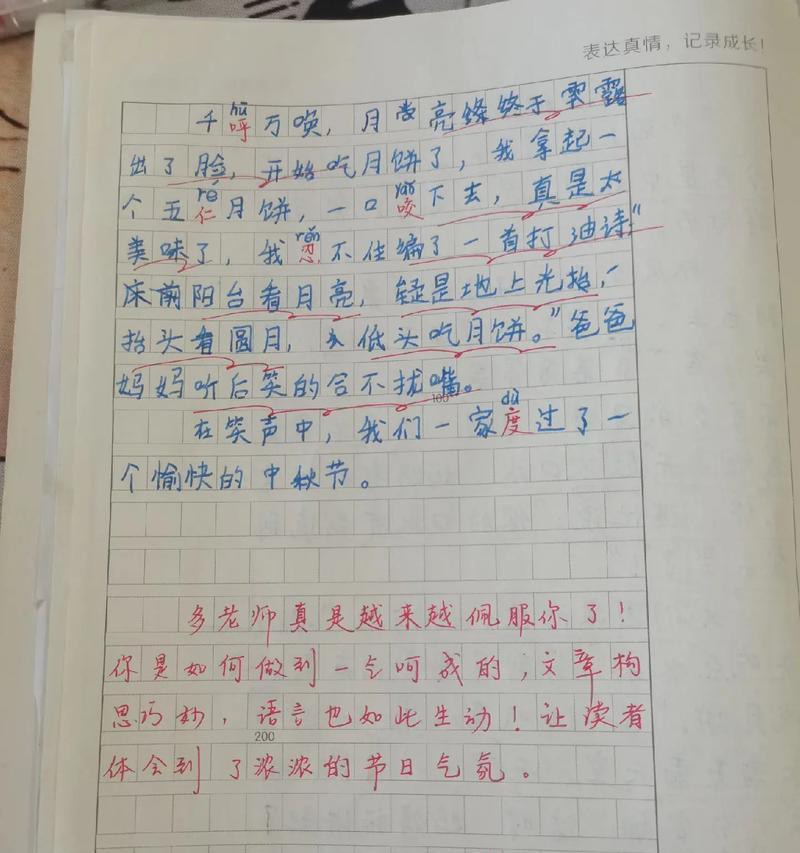 表达真情，记录成长！
hū
千呼万唤，月亮终于露
出了脸，开始吃月饼了，我拿起一
rén yǎo
个五仁月饼，一口咬下去，真是太
rěn
美味了，我忍不住编了一首打油诗“
床前阳台看月亮，疑是地上光抬，
抬头看圆月，低头吃月饼。”爸爸
妈妈听后笑的合不拢嘴。
100
dù
在笑声中，我们一家度过了一
个愉快的中秋节。
多老师真是越来越佩服你了！
你是如何做到一气呵成的，文章构
思巧妙，语言也如此生动！让读者
200
体会到了浓浓的节日气氛。